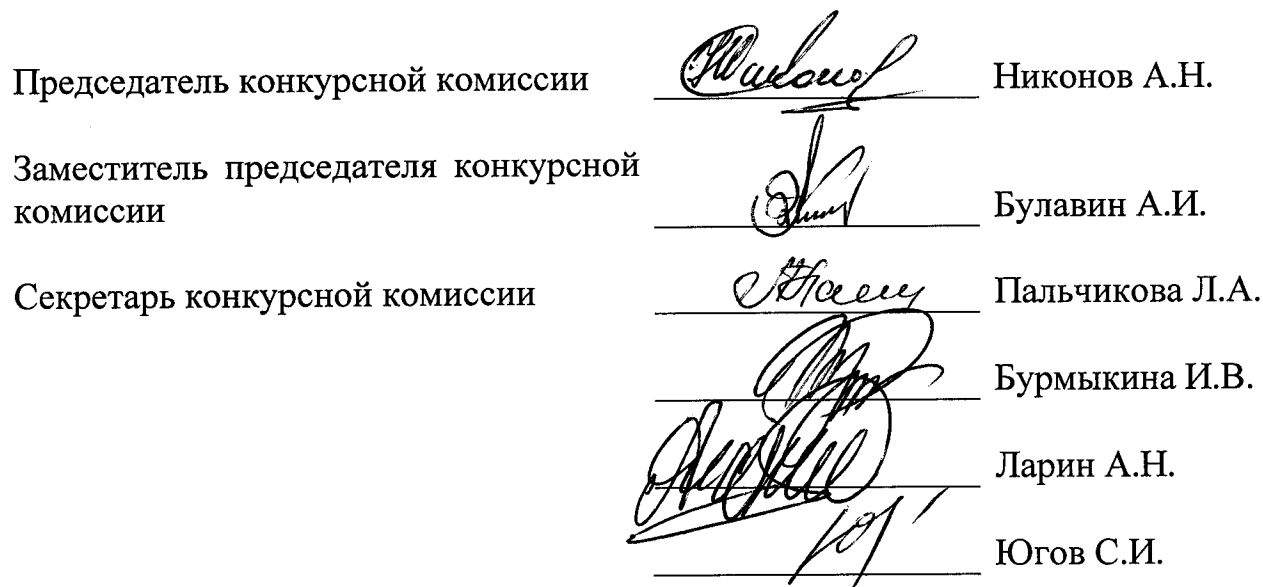 Председатель конкурсной комиссии Никонов А.Н.
Заместитель председателя конкурсной
комиссии Булавин А.И.
Секретарь конкурсной комиссии Пальчикова Л.А.
Бурмыкина И.В.
Ларин А.Н.
Югов С.И.